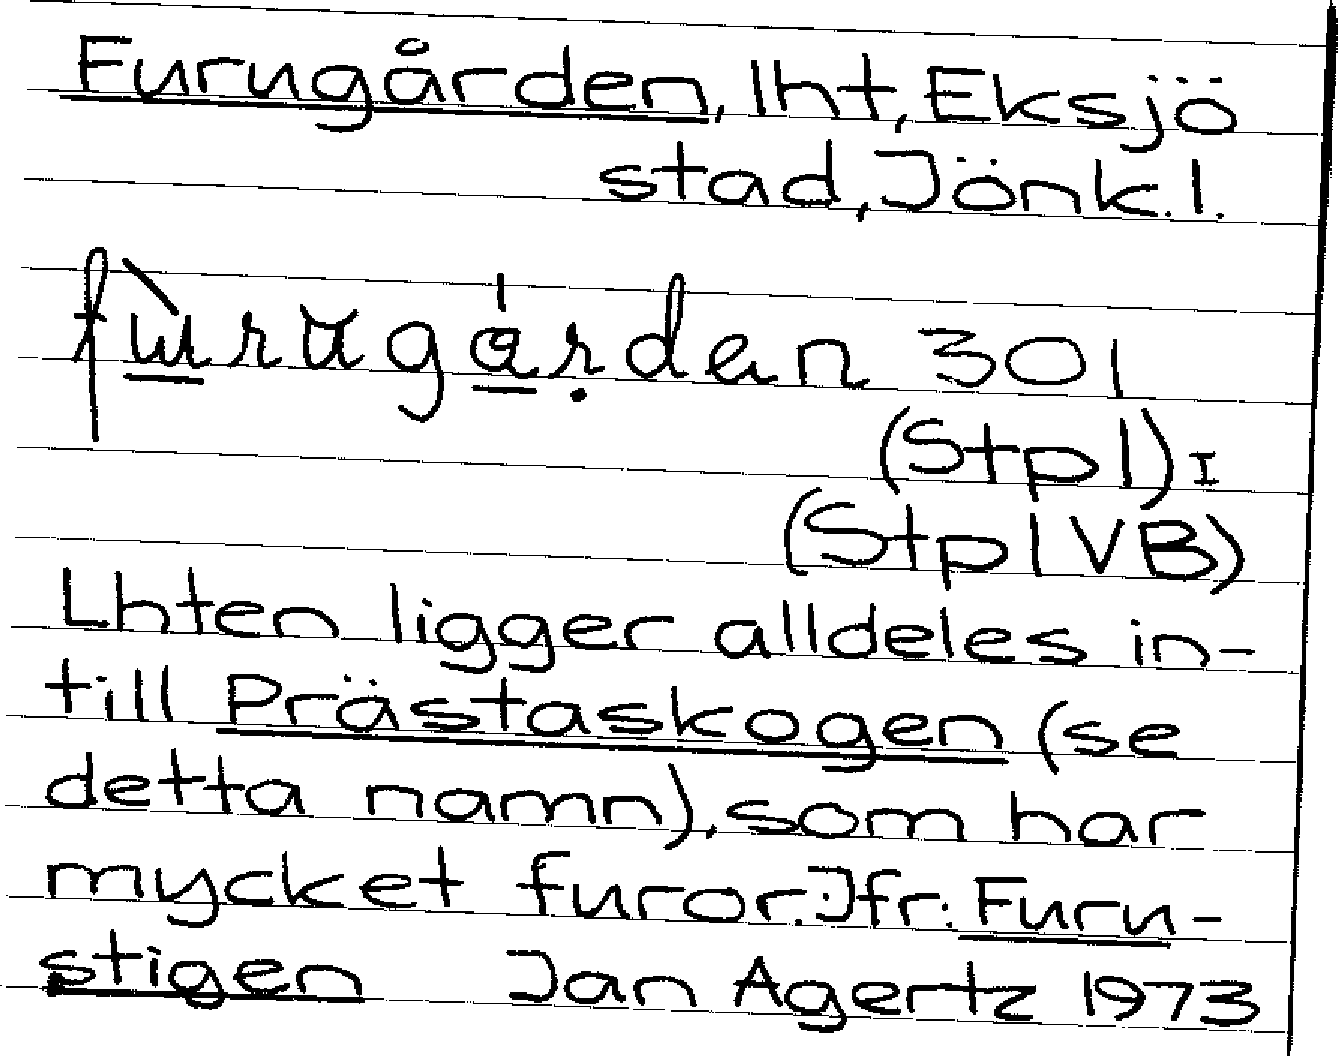 Furugården, lht, Eksjö
stad, Jönk.l.
fùrŭgárden 301
(Stpl)I
(StplVB)
Lhten ligger alldeles in-
till Prästaskogen (se
detta namn), som har
mycket furor. Jfr. Furu-
stigen Jan Agertz 1973